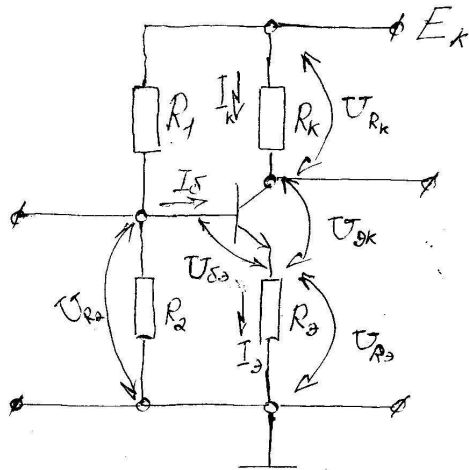 E_к
R1
I_к
R_к
U_Rк
I_б
U_эк
U_бэ
U_R2
R_2
R_э
I_э
U_Rэ